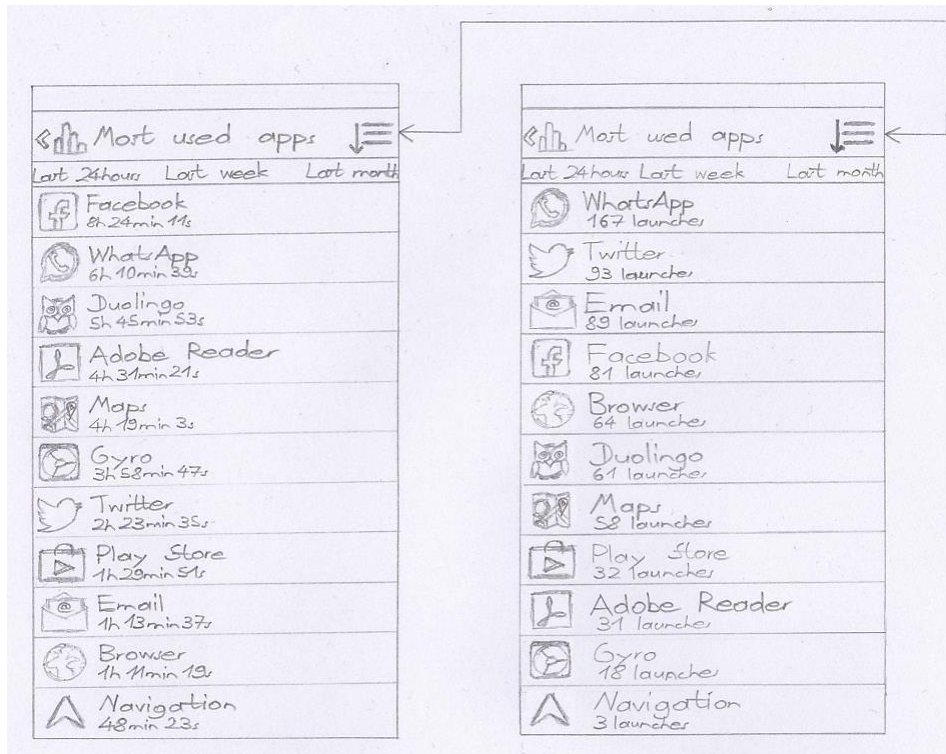 Most used apps
Last 24hours Last week Last month
Facebook
8h 24min 11s
WhatsApp
6h 10min 39s
Duolingo
5h 45min 53s
Adobe Reader
4h 31min 21s
Maps
4h 19min 3s
Gyro
3h 58min 47s
Twitter
2h 23min 35s
Play Store
1h 29min 51s
Email
1h 13min 37s
Browser
1h 11min 19s
Navigation
48min 23s
Most used apps
Last 24hours Last week Last month
WhatsApp
167 launches
Twitter
93 launches
Email
89 launches
Facebook
81 launches
Browser
64 launches
Duolingo
61 launches
Maps
58 launches
Play Store
32 launches
Adobe Reader
31 launches
Gyro
18 launches
Navigation
3 launches